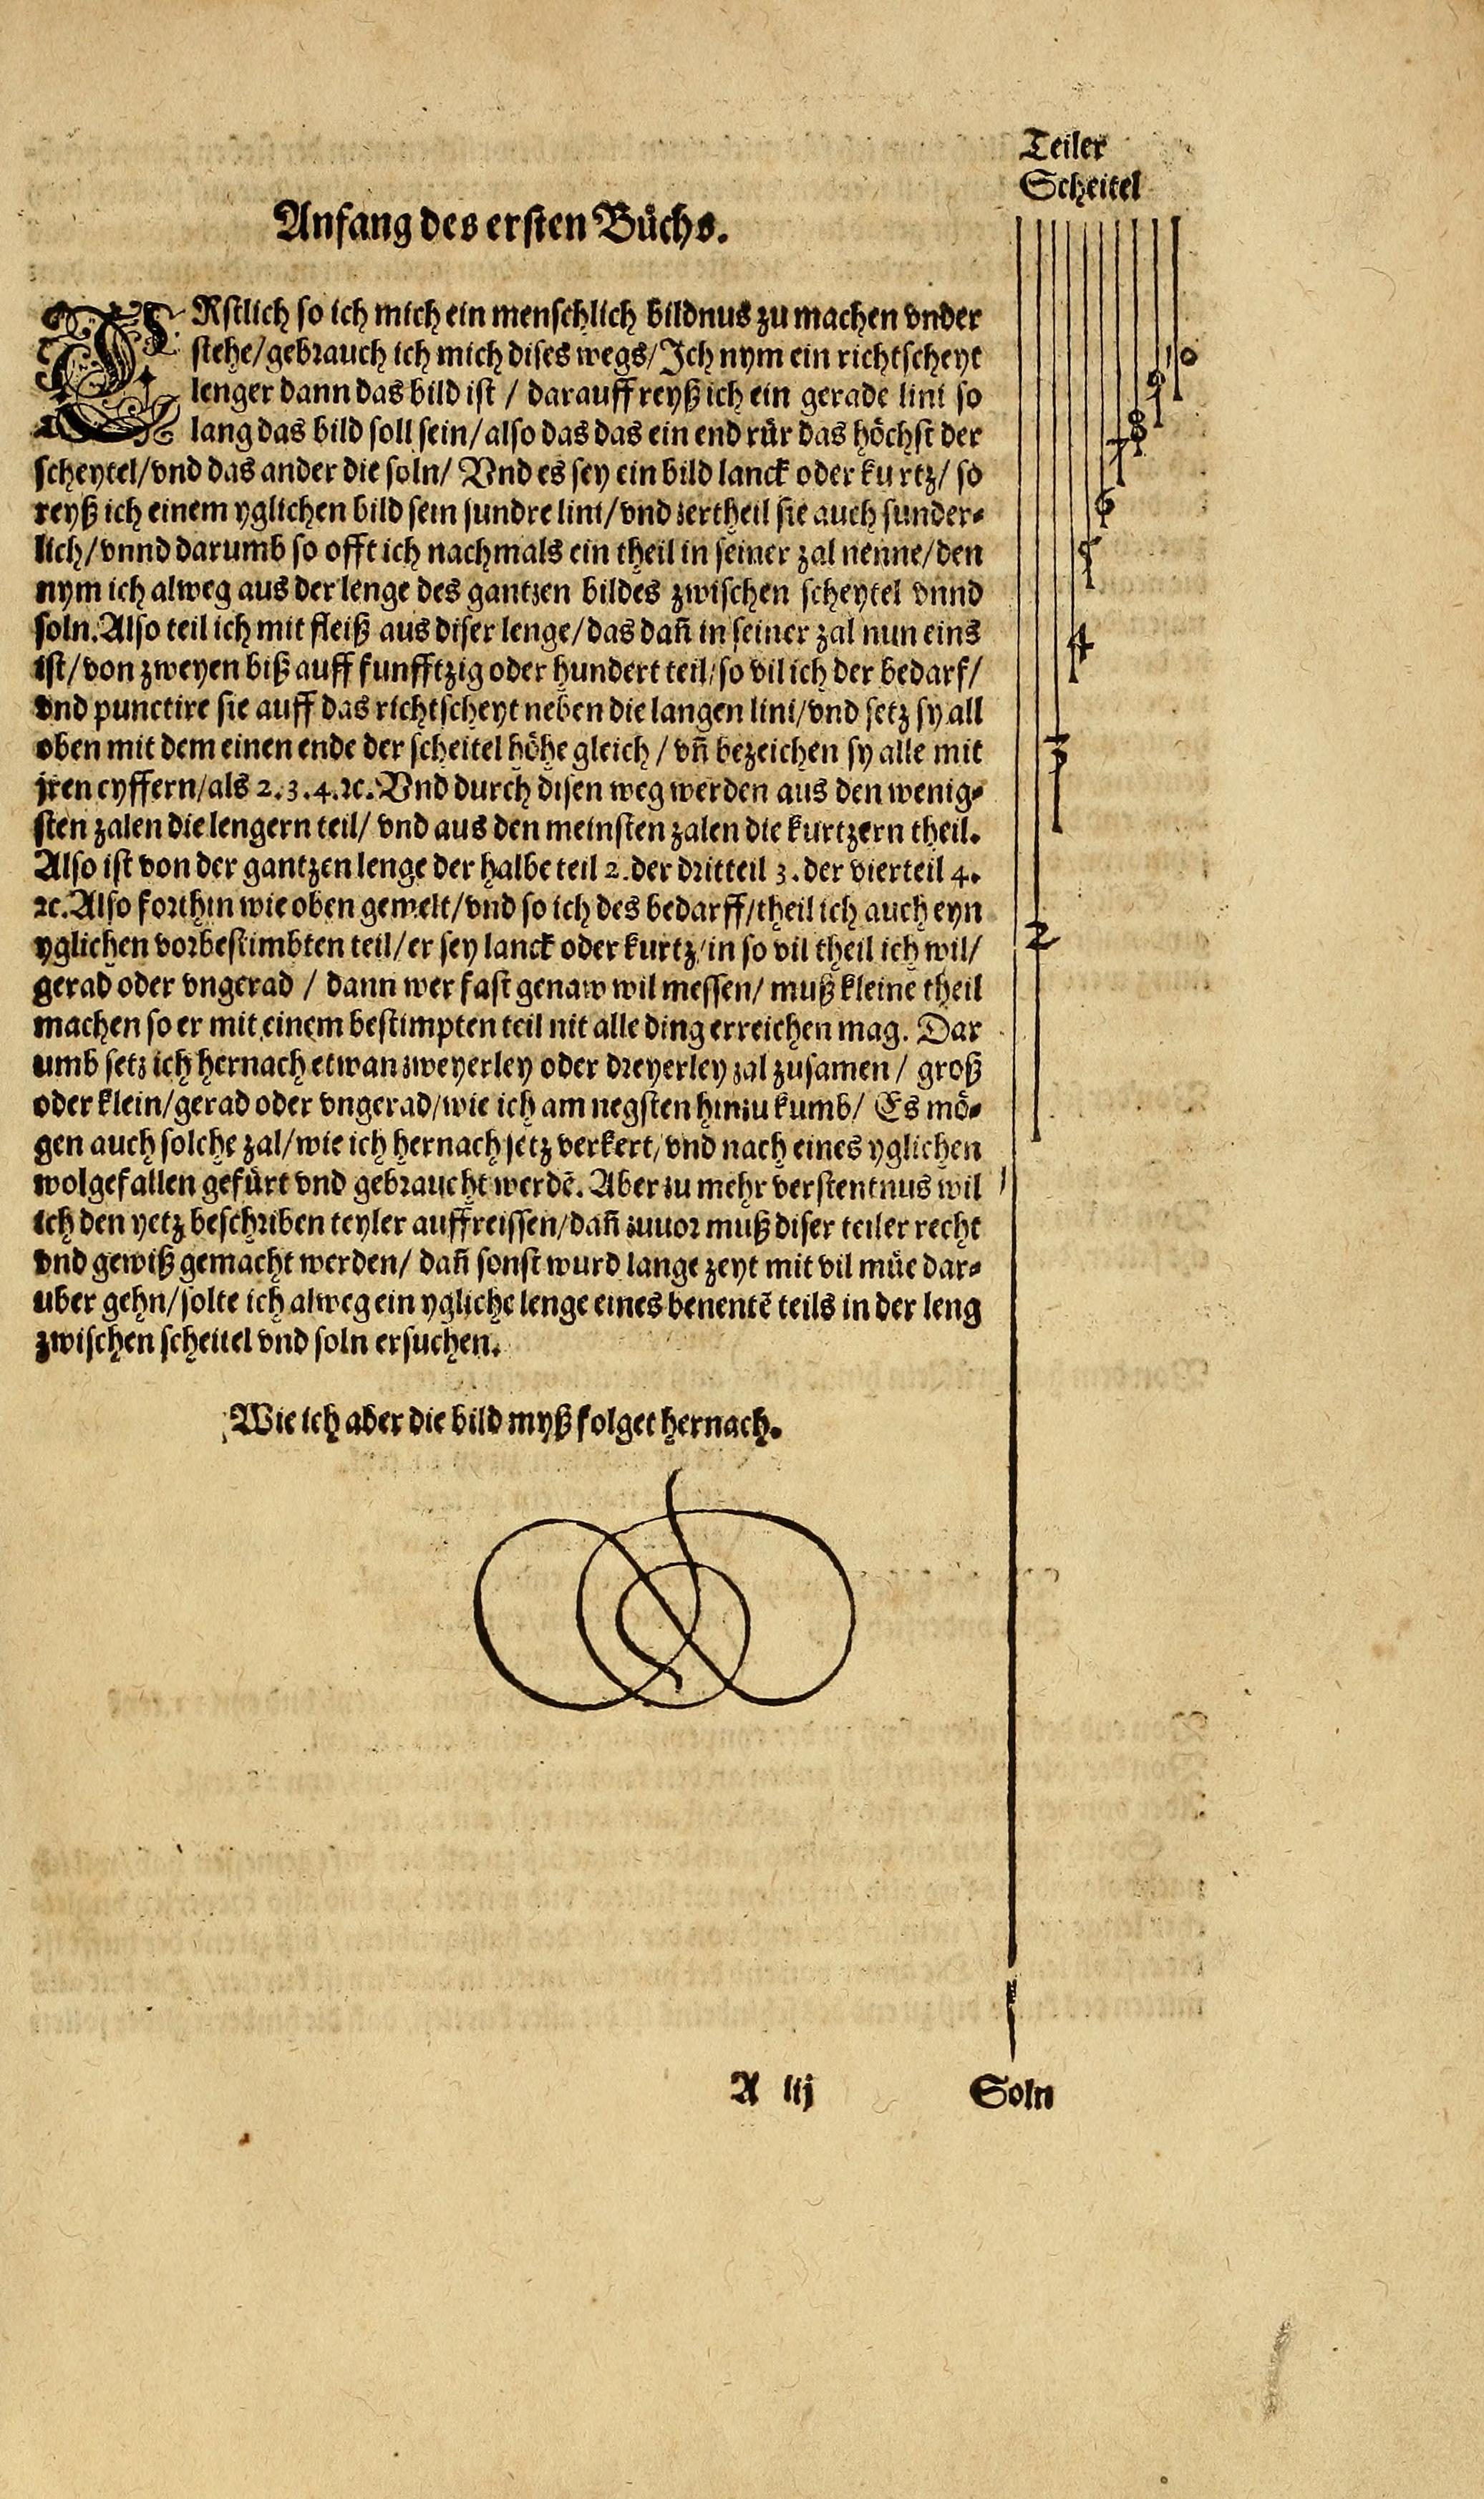 Teiler
Scheitel
Anfang des ersten Bůchs.
ERstlich so ich mich ein menschlich bildnus zu machen vnder
stehe/gebrauch ich mich dises wegs/Ich nym ein richtscheyt
lenger dann das bild ist / darauff reyß ich ein gerade lini so
lang das bild soll sein/also das das ein end růr das höchst der
scheytel/vnd das ander die soln/ Vnd es sey ein bild lanck oder kurtz/ so
reyß ich einem yglichen bild sein sundre lini/vnd zertheil sie auch sunder⸗
lich/vnnd darumb so offt ich nachmals ein theil in seiner zal nenne/den
nym ich alweg aus der lenge des gantzen bildes zwischen scheytel vnnd
soln. Also teil ich mit fleiß aus diser lenge/das dañ in seiner zal nun eins
ist/von zweyen biß auff funfftzig oder hundert teil/so vil ich der bedarf/
vnd punctire sie auff das richtscheyt neben die langen lini/vnd setz sy all
oben mit dem einen ende der scheitel höhe gleich / vñ bezeichen sy alle mit
jren cyffern/als 2.3.4.ꝛc. Vnd durch disen weg werden aus den wenig⸗
sten zalen die lengern teil/ vnd aus den meinsten zalen die kurtzern theil.
Also ist von der gantzen lenge der halbe teil 2. der dritteil 3. der vierteil 4.
ꝛc. Also forthin wie oben gemelt/vnd so ich des bedarff/theil ich auch eyn
yglichen vorbestimbten teil/er sey lanck oder kurtz/in so vil theil ich wil/
gerad oder vngerad / dann wer fast genaw wil messen/ muß kleine theil
machen so er mit einem bestimpten teil nit alle ding erreichen mag. Dar
umb setz ich hernach etwan zweyerley oder dreyerley zal zusamen / groß
oder klein/gerad oder vngerad/wie ich am negsten hinzu kumb/ Es mö⸗
gen auch solche zal/wie ich hernach setz verkert/vnd nach eines yglichen
wolgefallen gefůrt vnd gebraucht werdẽ. Aber zu mehr verstentnus wil
ich den yetz beschriben teyler auffreissen/dañ zuuor muß diser teiler recht
vnd gewiß gemacht werden/ dañ sonst wurd lange zeyt mit vil můe dar⸗
uber gehn/solte ich alweg ein ygliche lenge eines benentẽ teils in der leng
zwischen scheitel vnd soln ersuchen.
Wie ich aber die bild myß folget hernach.
10
9
8
7
6
5
4
3
2
1
A iij
Soln